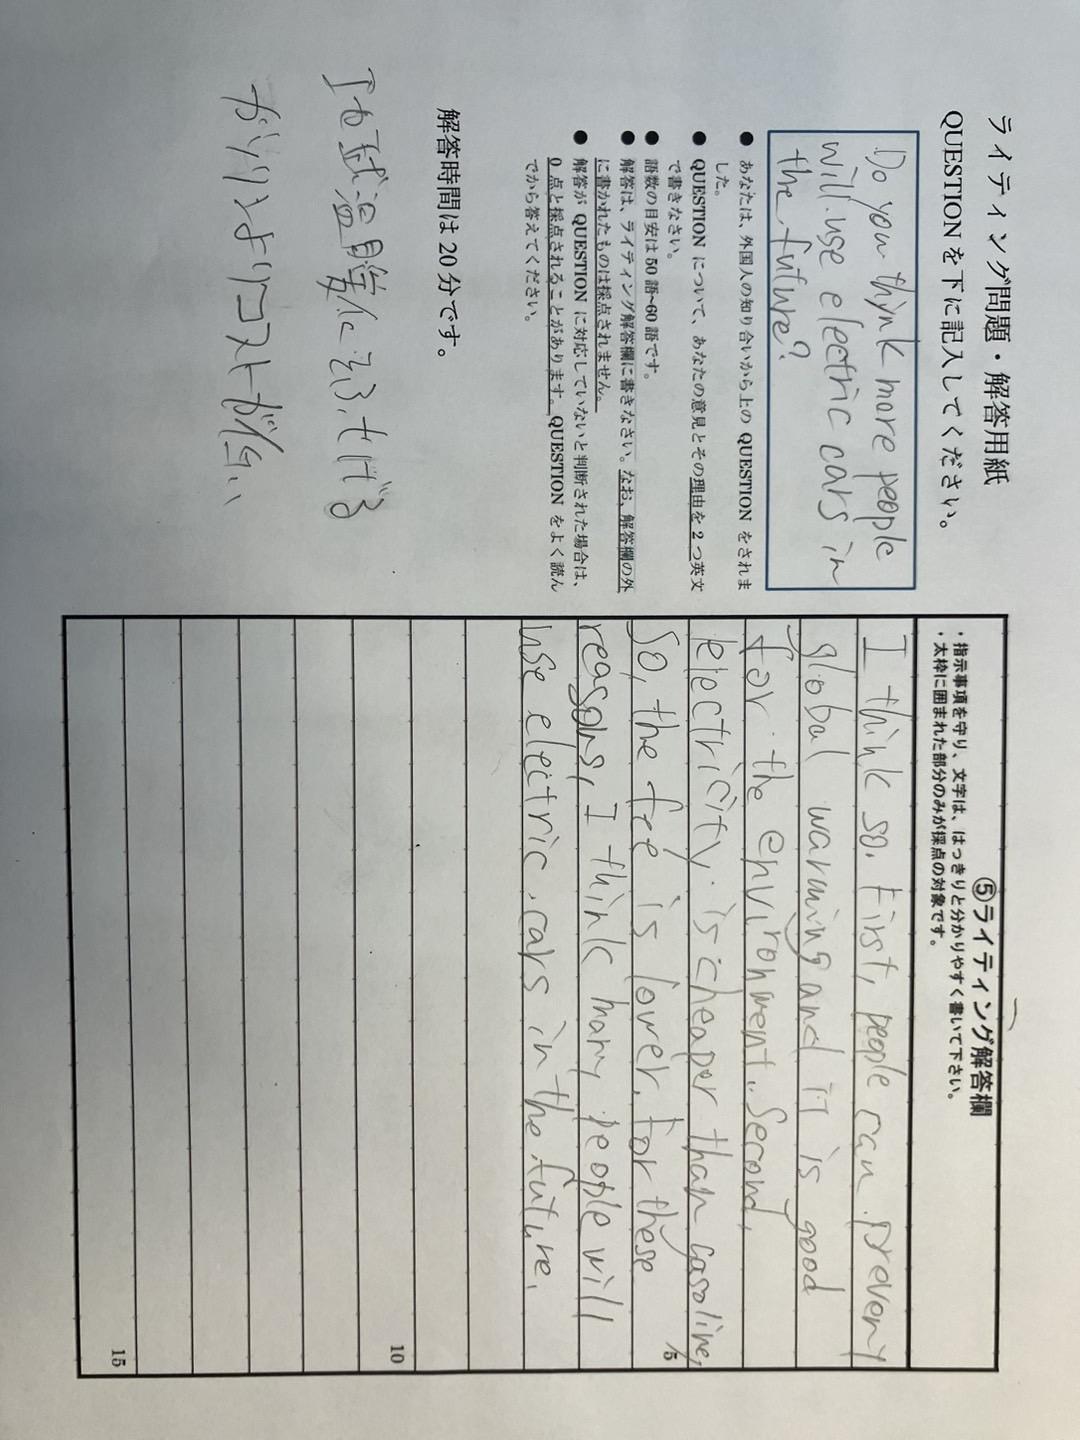 ライティング問題・解答用紙
QUESTION を下に記入してください。
Do you think more people
will use electric cars in
the future?
● あなたは、外国人の知り合いから上の QUESTION をされま
した。
● QUESTION について、あなたの意見とその理由を 2 つ英文
で書きなさい。
● 語数の目安は 50 語~60 語です。
● 解答は、ライティング解答欄に書きなさい。なお、解答欄の外
に書かれたものは採点されません。
● 解答が QUESTION に対応していないと判断された場合は、
0 点と採点されることがあります。QUESTION をよく読ん
でから答えてください。
解答時間は 20 分です。
地球温暖化を ふせげる
ガソリンよりコストが低い
⑤ライティング解答欄
・指示事項を守り、文字は、はっきりと分かりやすく書いて下さい。
・太枠に囲まれた部分のみが採点の対象です。
I think so. First, people can
global warming and it is good
for the environment. Second,
electricity is cheaper than gasoline,
So, the fee is lower. For these
reasons, I think many people will
use electric cars in the future.
5
10
15